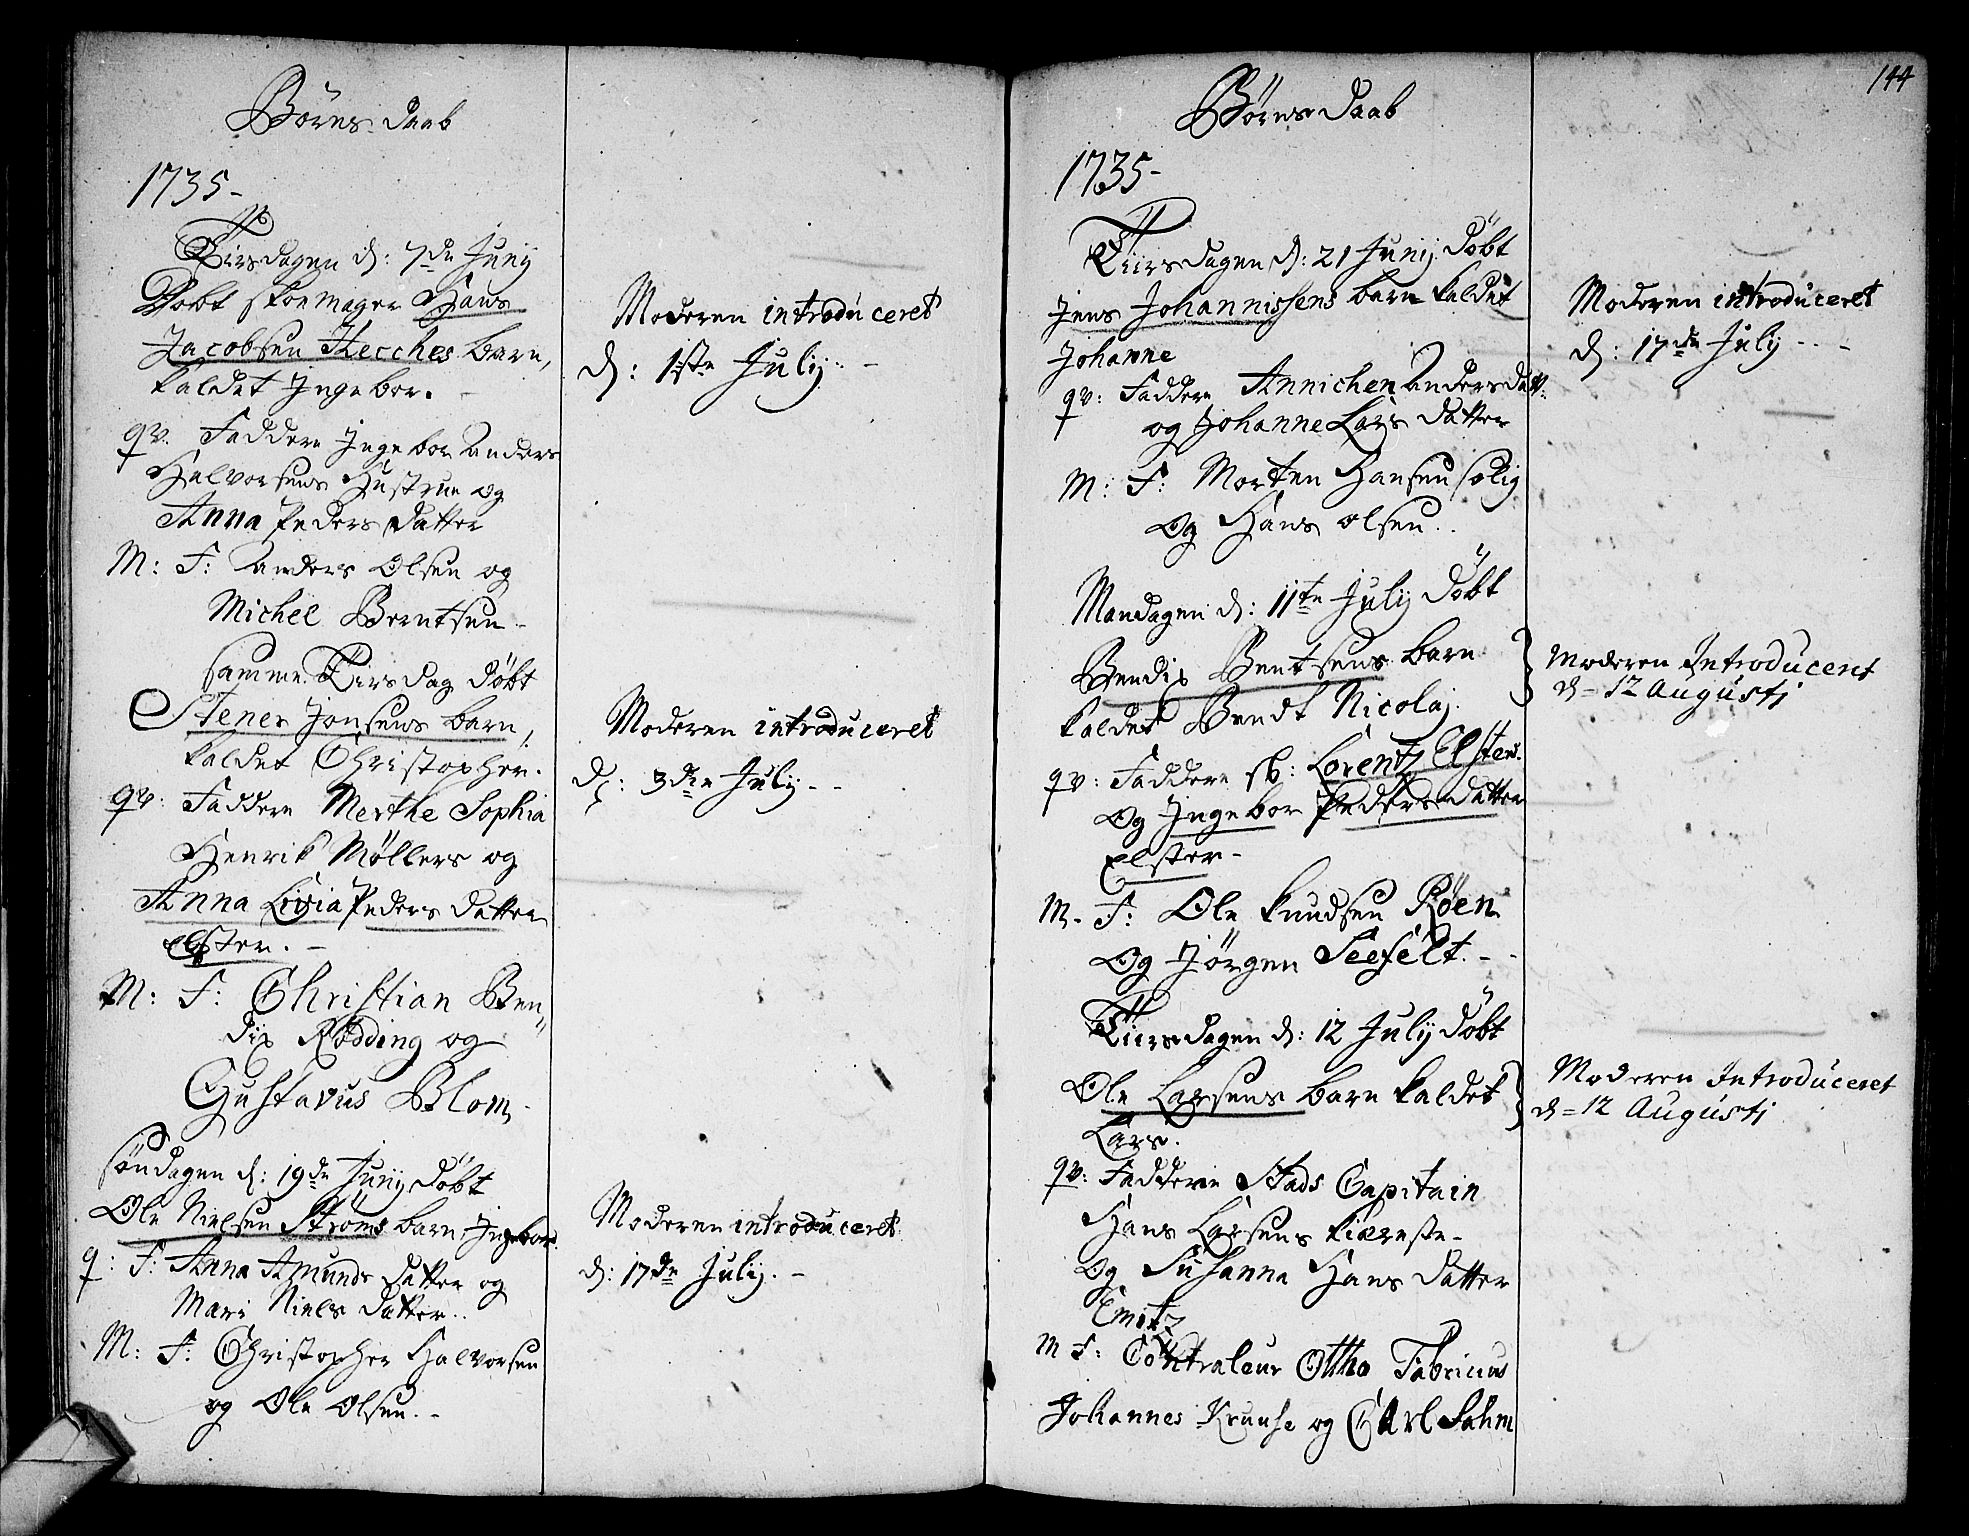 Börns daab
1735-
Tirsdagen d: 7de Junÿ
Döbt skoemager Hans
Jacobsen Hecches barn,
kaldet Ingebor.
qv. Faddere Ingebor Anders
Halvorsens Hustrue og
Anna Peders datter
M: F: Anders Olsen og
Michel Berntsen-
samme Tirsdag döbt
Stener Jonsens barn,
kaldet Christopher.
qv: Faddere Merthe Sophia
Henrik Møllers og
Anna Livia Peders datter
Elster. -
M: F: Christian Ben-
dix Rødding og
Gustavus Blom
söndagen d: 19de Junÿ döbt
Ole Nielsen Ströms barn, Ingebor.
q: F: Anna Amunds datter og
Mari Niels datter..
M: F: Christopher Halvorsen
og Ole Olsen. -
Moderen introduceret
d: 1ste Julÿ. -
Moderen introduceret
d: 3die Julÿ - -
Moderen introduceret
d: 17de Julÿ. -
144
Børns daab
1735-
Tiirsdagen d: 21 Junij döbt
Jens Johannissens barn kaldet
Johanne
qv: Faddere Annichen Andersdatt:
og Johanne Lars datter
M: F: Morten Hansen
Og Hans Olsen..
Mandagen d: 11te Julÿ döbt
Bendix Bentsens barn
kaldet Bendt Nicolaj.
qv: Faddere sl: Lorentz Elsters
Og Ingebor Peders datter
Elster-
M. F: Ole Knudsen Røen
Og Jörgen Seefelt. - -
Tiirsdagen d: 12 Julÿ döbt
Ole Larsens barn kaldet
Lars.
qv: Faddere Stads Capitain
Hans Larsens kiæreste-
Og Susanna Hans datter
Smitz
M F: Contraleur Ottho Fabricius
Johannes Kruuse og Carl Sahm
Moderen introduceret
d: 17de Julÿ - - -
Moderen Introduceret
d = 12 Augustj
Moderen Introduceret
d = 12 Augustj